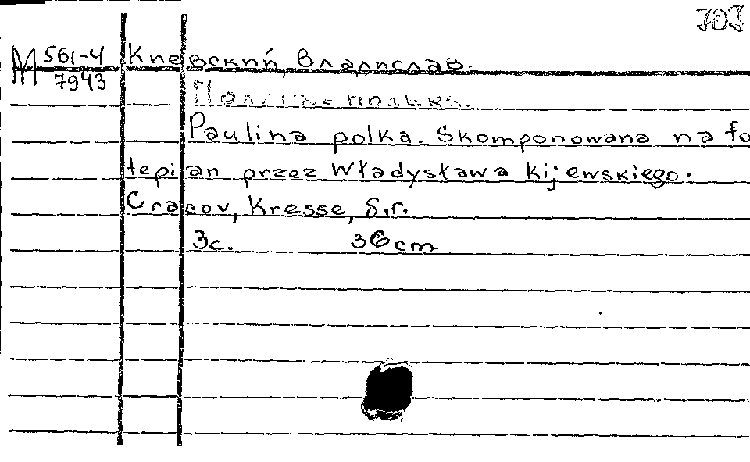 М 561-4
7943
Киевский, Владислав.
полька.
Paulina polka. Skomponowana na fo
tepi an przez Władysława Kijewskiego.
Cracov, Kresse, s.r.
3c. 36 cm